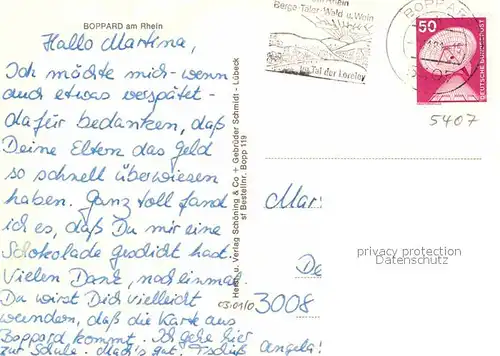 BOPPARD am Rhein
Hallo Martina,
Ich möchte mich - wenn
auch etwas verspätet -
dafür bedanken, daß
Deine Eltern das Geld
so schnell überwiesen
haben. Ganz toll fand
ich es, daß Du mir eine
Schokolade geschickt hast.
Vielen Dank, noch einmal.
Du wirst Dich vielleicht
wundern, daß die Karte aus
Boppard kommt. Ich gehe hier
zur Schule. Mach's gut! Tschüß
Angela!
Herst. u. Verlag Schöning & Co + Gebrüder Schmidt - Lübeck
sf Bestellnr. Bopp 119
Berge-Täler-Wald u. Wein
Im Tal der Loreley
BOPPARD
50
DEUTSCHE BUNDESPOST
5407
Mar
privacy protection
Datenschutz
De
3008